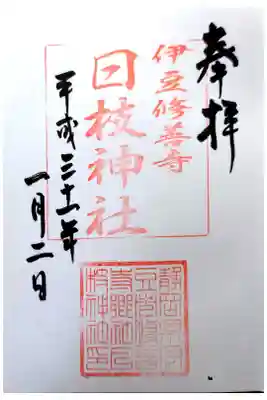 奉拝
伊豆修善寺
日枝神社
平成三十一年
一月二日